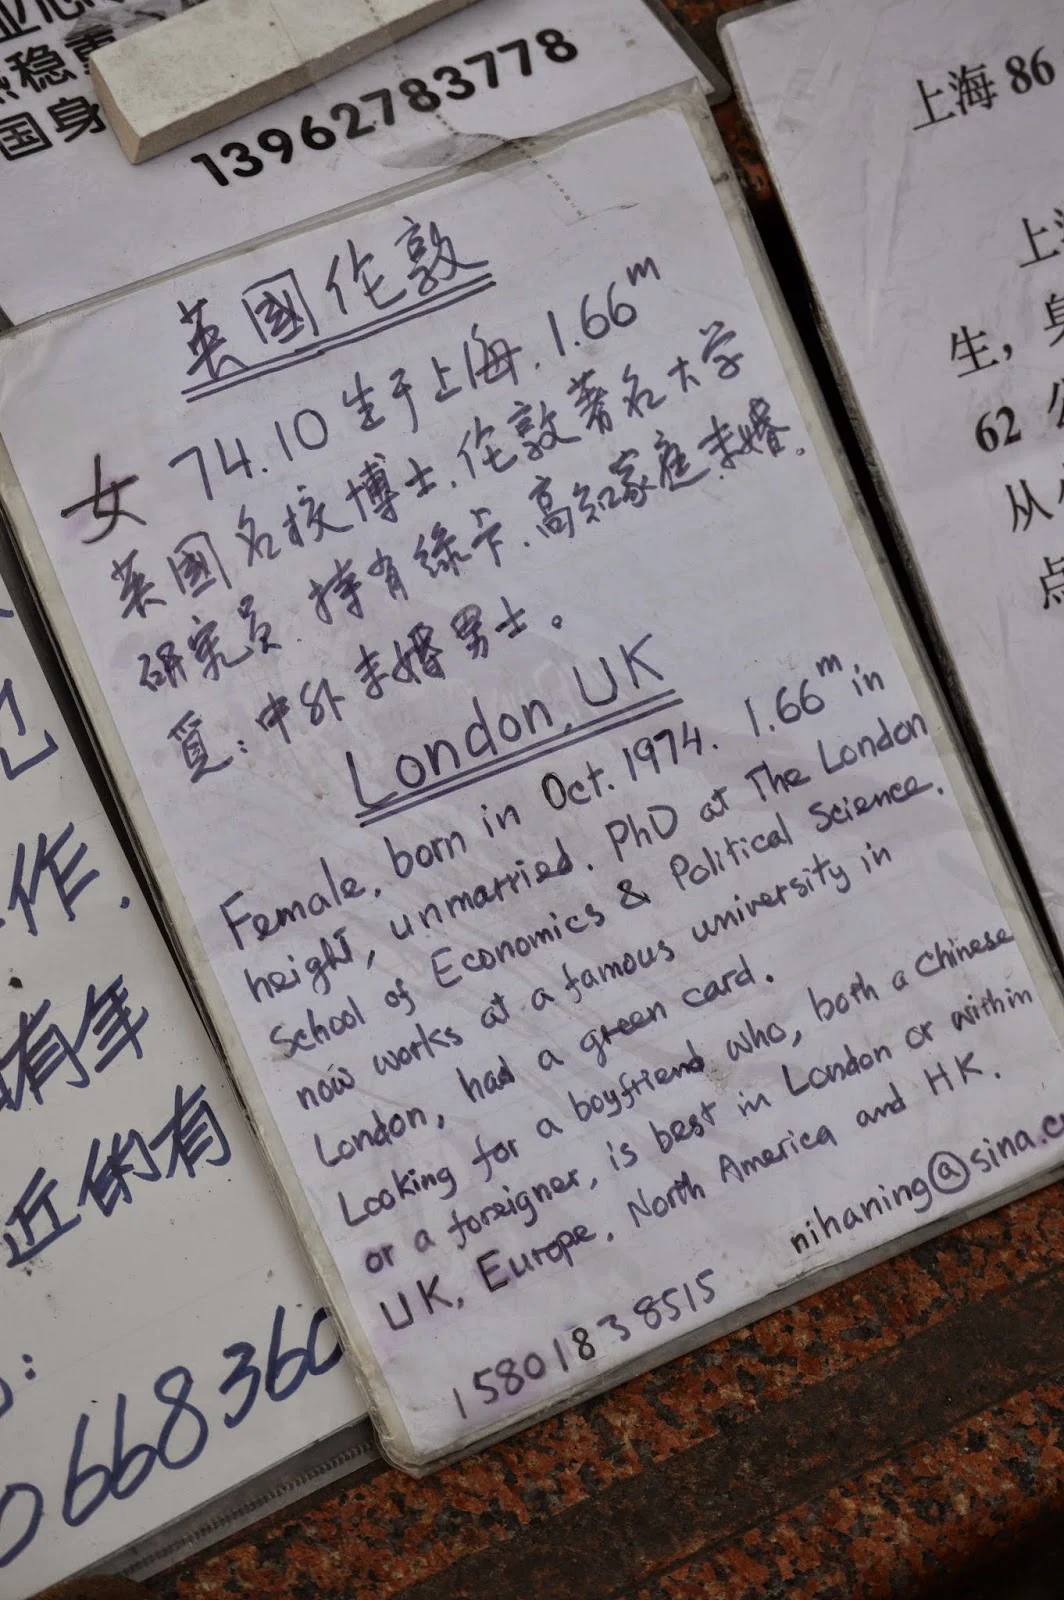 稳
国身
13962783778
英國伦敦
女 74.10生于上海.1.66m
英國名校博士.伦敦著名大学
研究员.持有绿卡.高知家庭.未婚.
觅:中外未婚男士。
London, UK
Female, born in Oct. 1974. 1.66m in
height, unmarried. PhD at The London
School of Economics & Political Science.
now works at a famous university in
London, had a green card.
Looking for a boyfriend who, both a Chinese
or a foreigner, is best in London or within
UK, Europe, North America and HK.
nihaning@sina.c
15801838515
作.
有年
近的有
066836
上海 86
上
生,
62
从
点